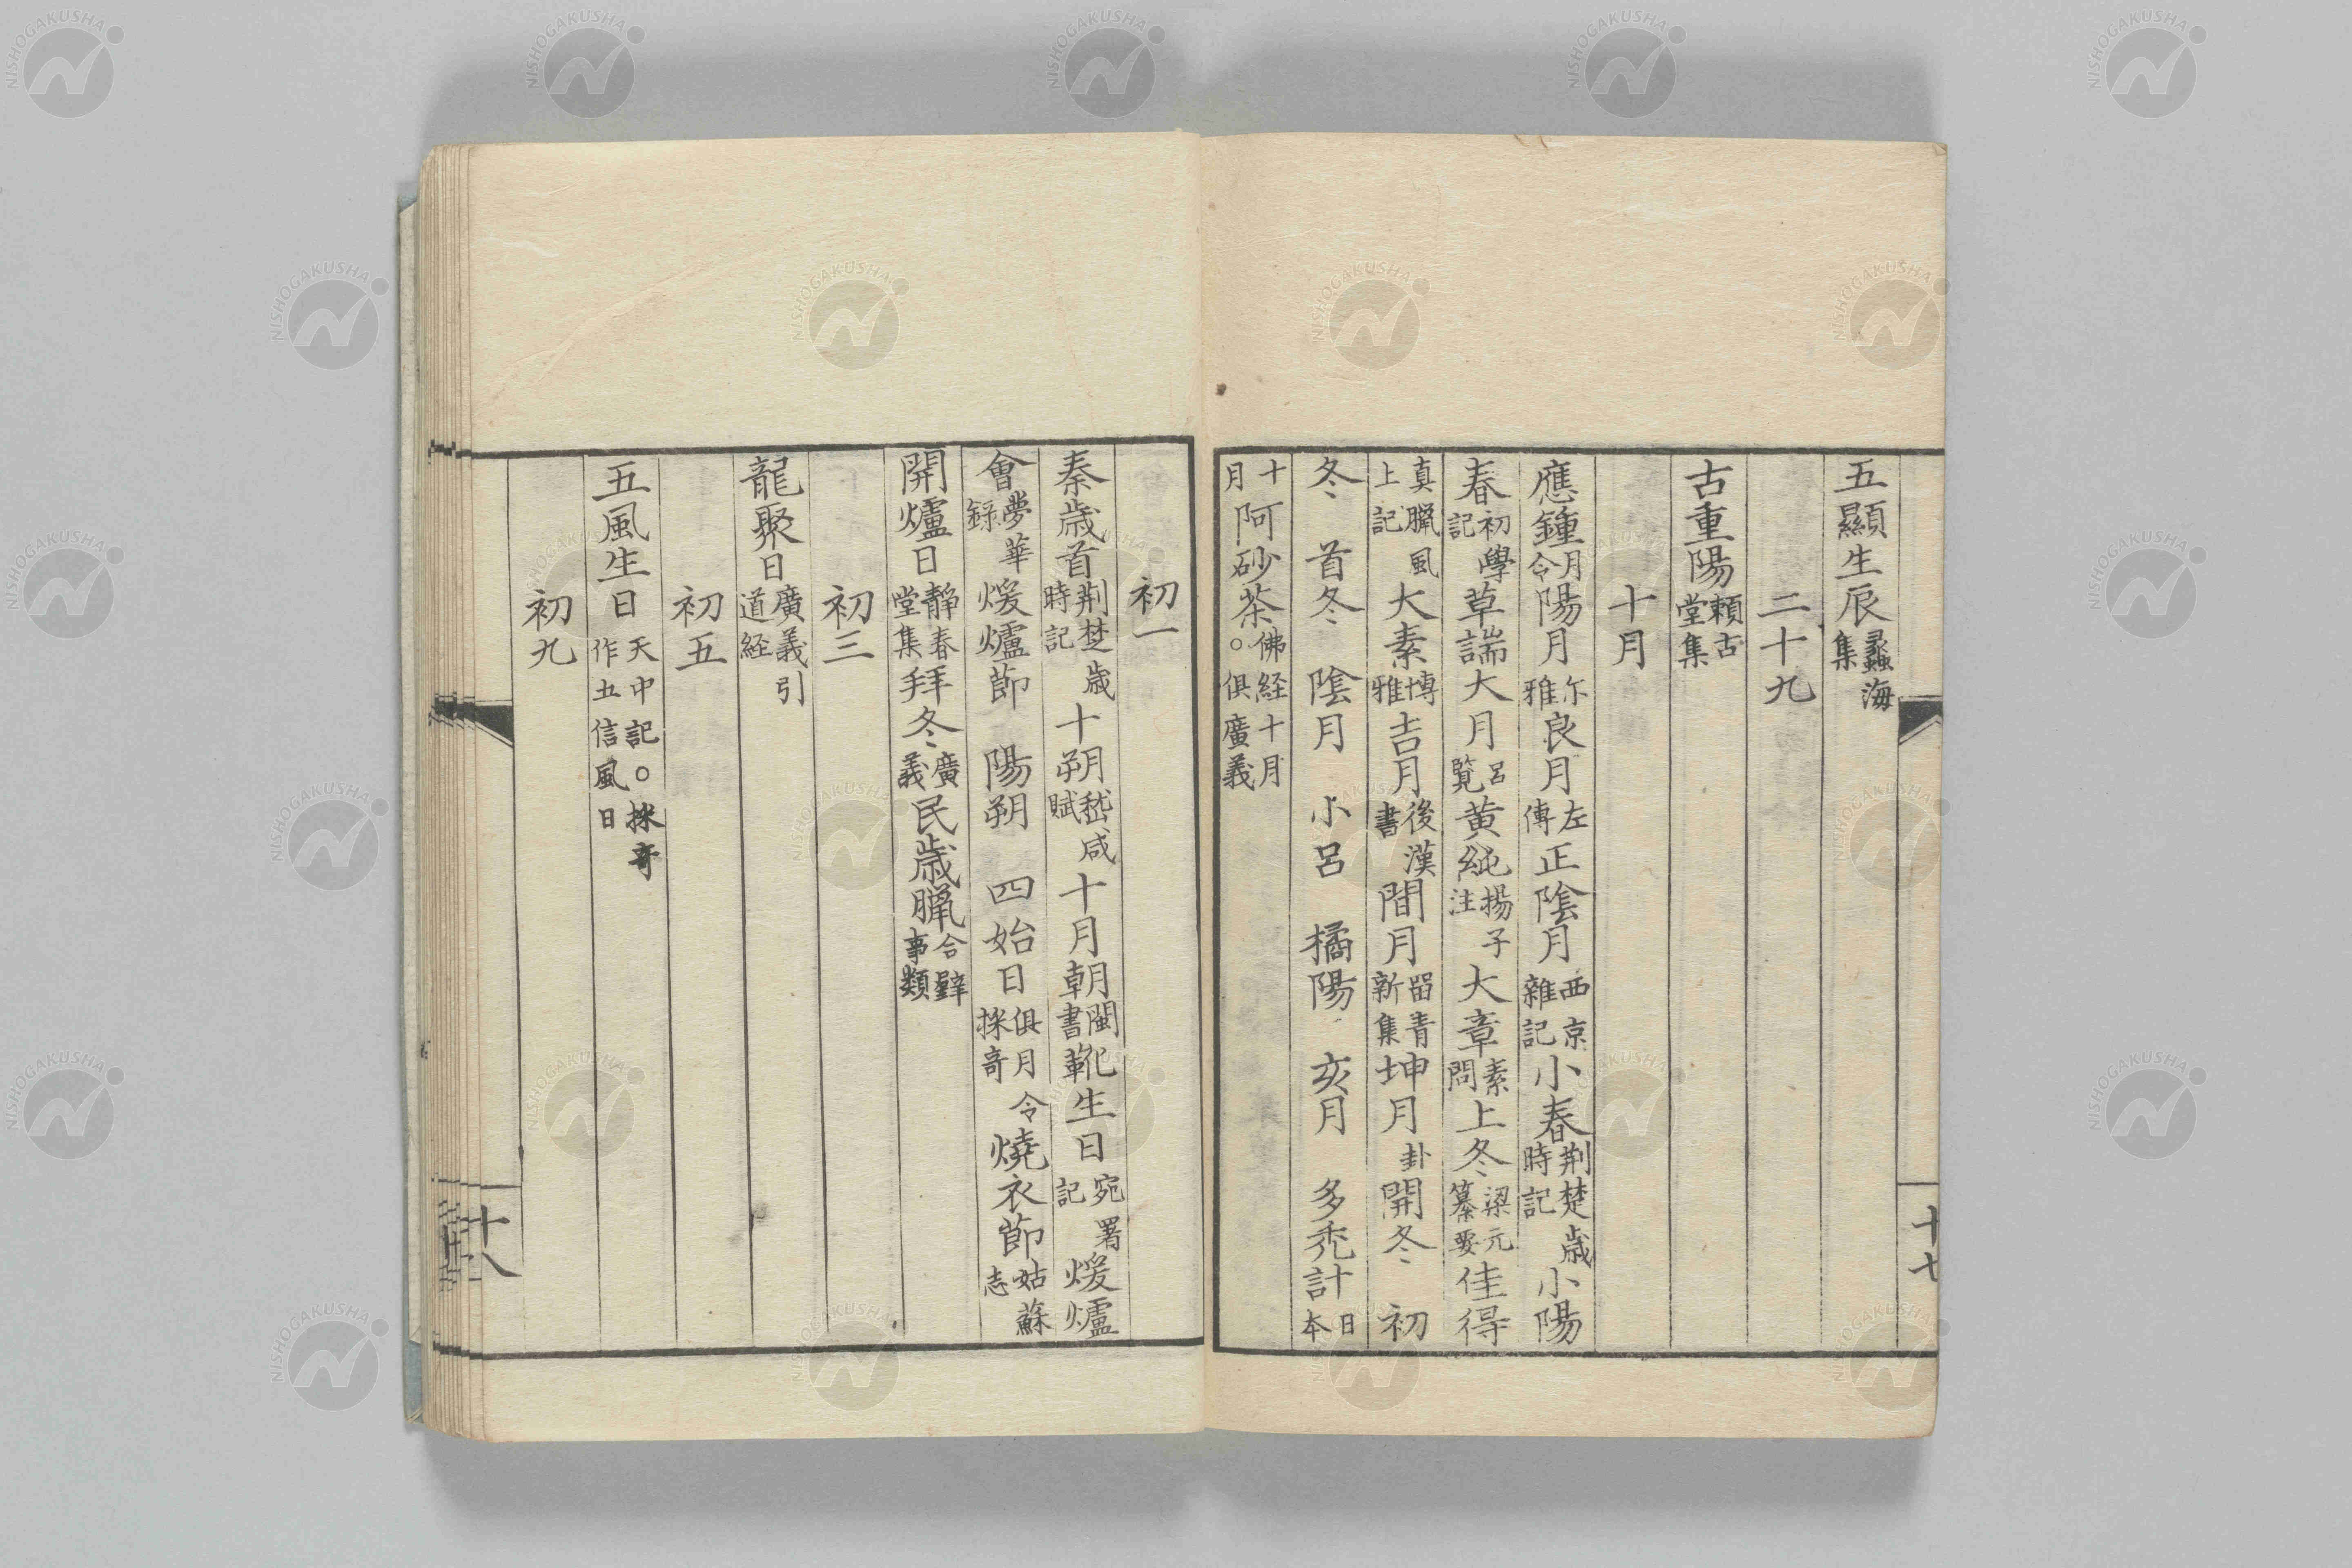 五顯生辰蠡海集
二十九
古重陽賴古堂集
十月
應鍾月令陽月尓雅良月左傳正陰月西京雜記小春荆楚歳時記小陽
春初學記草端大月呂覧黄純揚子注大章素問上冬梁元纂要佳得
真臘風上記大素博雅吉月後漢書間月留青新集坤月卦開冬初
冬首冬陰月小呂橘陽亥月多禿計日本
十月阿砂茶。佛経十月俱廣義
十七
初一
秦歳首荆楚歳時記十朔嵇咸賦十月朝閩書鞾生日宛署記煖爐
會夢華錄煖爐節陽朔四始日俱月令採奇燒衣節姑蘇志
開爐日静春堂集拜冬廣義民歳臘合璧事類
初三
龍聚日廣義引道経
初五
五風生日天中記。採奇作五信風日
初九
十八
NISHOGAKUSHA